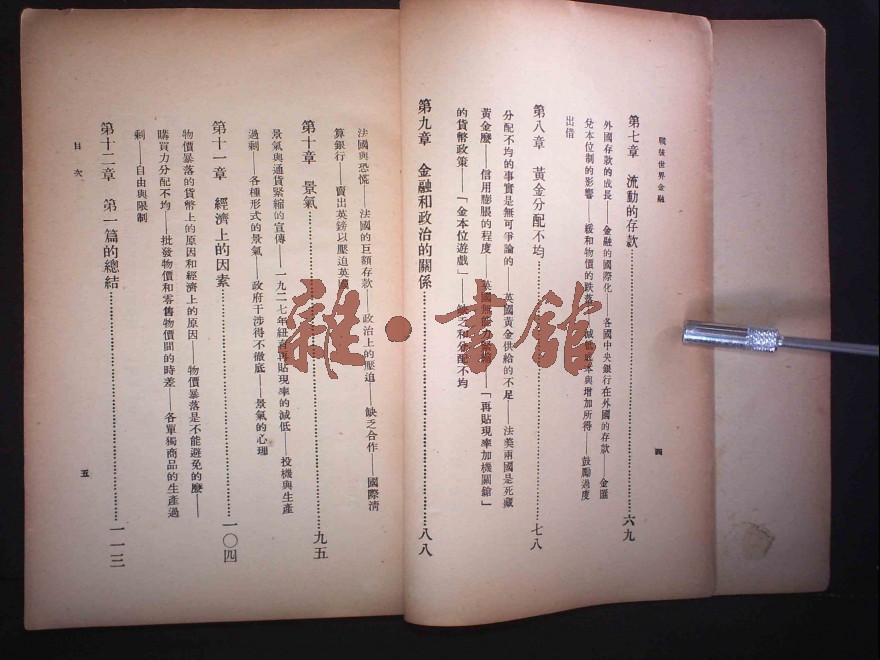 戰後世界金融
四
第七章　流動的存款……六九
外國存款的成長——金融的國際化——各國中央銀行在外國的存款——金匯
兌本位制的影響——緩和物價的跌落——減低成本與增加所得——鼓勵過度
出借
第八章　黃金分配不均……七八
分配不均的事實是無可爭論的——英國黃金供給的不足——法美兩國是死藏
黃金麼——信用膨脹的程度——英國無能——「再貼現率加機關鎗」
的貨幣政策——「金本位遊戲」——缺乏和分配不均
第九章　金融和政治的關係……八八
法國與恐慌——法國的巨額存款——政治上的壓迫——缺乏合作——國際清
算銀行——賣出英鎊以壓迫英國
第十章　景氣……九五
景氣與通貨緊縮的宣傳——一九二七年紐育再貼現率的減低——投機與生產
過剩——各種形式的景氣——政府干涉得不徹底——景氣的心理
第十一章　經濟上的因素……一〇四
物價暴落的貨幣上的原因和經濟上的原因——物價暴落是不能避免的麼——
購買力分配不均——批發物價和零售物價間的時差——各單獨商品的生產過
剩——自由與限制
第十二章　第一篇的總結……一一三
目次
五
雜·書館